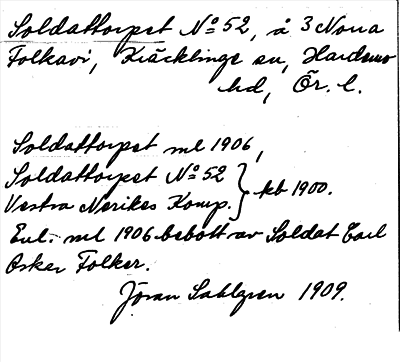 Soldattorpet No 52, å 3 Norra
Folkavi, Kräcklinge sn, Hardemo
hd, Ör. l.
Soldattorpet ml 1906,
Soldattorpet No 52
Vestra Nerikes Komp. } kb 1900.
Enl. ml 1906 bebott av Soldat Carl
Oskar Folker.
Jöran Sahlgren 1909.